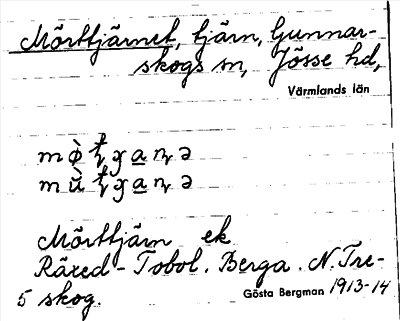 Mörttjärnet, tjärn, Gunnar-
skogs sn, Jösse hd,
Värmlands län
Mörttjärn ek
Räxed - Tobol. Berga. N. Tre-
5 skog.
Gösta Bergman 1913-14